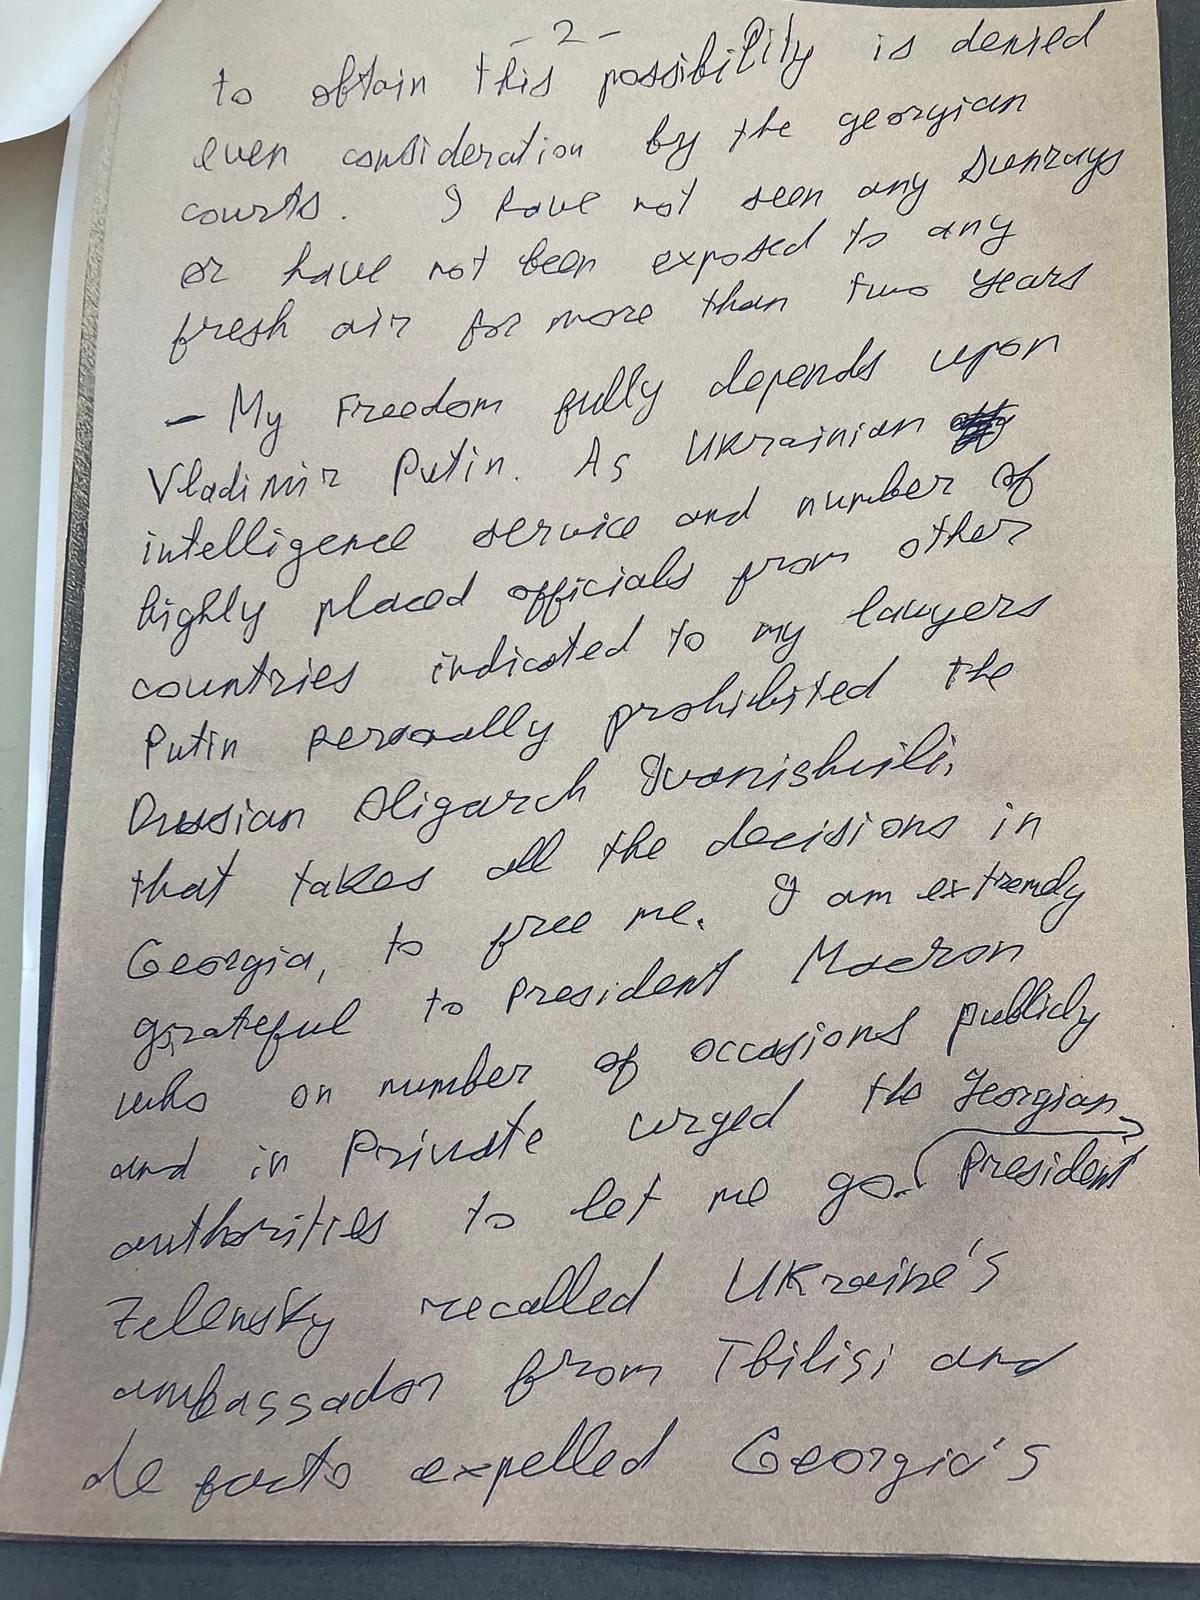 - 2 -
to obtain this possibility is denied
even consideration by the georgian
courts. I have not seen any sunrays
or have not been exposed to any
fresh air for more than two years
- My Freedom fully depends upon
Vladimir Putin. As Ukrainian
intelligence service and number of
highly placed officials from other
countries indicated to my lawyers
Putin personally prohibited the
Russian Oligarch Ivanishvili,
that takes all the decisions in
Georgia, to free me. I am extremely
grateful to president Macron
who on number of occasions publicly
and in Private urged the georgian
authorities to let me go. President
Zelensky recalled Ukraine's
ambassador from Tbilisi and
de facto expelled Georgia's